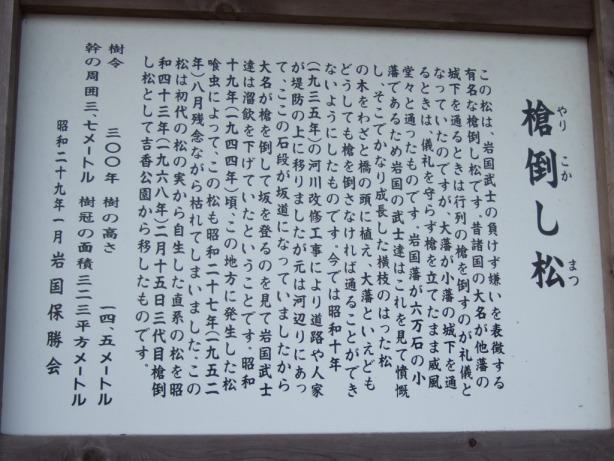 槍倒し松
やり こか まつ
この松は、岩国武士の負けず嫌いを表徴する
有名な槍倒し松です。昔諸国の大名が他藩の
城下を通るときは行列の槍を倒すのが礼儀と
なっていたのですが、大藩が小藩の城下を通
るときは、儀礼を守らず槍を立てたまま威風
堂々と通ったものです。岩国藩が六万石の小
藩であるため岩国の武士達はこれを見て憤慨
し、そこでかなり成長した横枝のはった松
の木をわざと橋の頭に植え、大藩といえども
どうしても槍を倒さなければ通ることができ
ないようにしたものです。今では昭和十年
(一九三五年)の河川改修工事により道路や人家
が堤防の上に移りましたが元は河辺りにあっ
て、ここの石段が坂道になっていましたから
大名が槍を倒して坂を登るのを見て岩国武士
達は溜飲を下げていたということです。昭和
十九年(一九四四年)頃、この地方に発生した松
喰虫によって、この松も昭和二十七年(一九五二
年)八月残念ながら枯れてしまいました。この
松は初代の松の実から自生した直系の松を昭
和四十三年(一九六八年)二月十五日三代目槍倒
し松として吉香公園から移したものです。
樹令 三〇〇年 樹の高さ 一四、五メートル
幹の周囲三、七メートル 樹冠の面積 三一三平方メートル
昭和二十九年一月 岩国保勝会